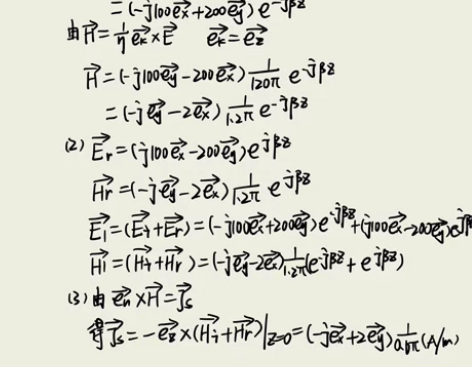 =(-j100e⃗x+200e⃗y)e^-jβz
由H⃗=1/η e⃗k×E⃗   e⃗k=e⃗z
H⃗=(-j100e⃗y-200e⃗x)1/120π e^-jβz
=(-je⃗y-2e⃗x)1/1.2π e^-jβz
(2) E⃗r=(j100e⃗x-200e⃗y)e^jβz
H⃗r=(-je⃗y-2e⃗x)1/1.2π e^jβz
E⃗1=(E⃗i+E⃗r)=(-j100e⃗x+200e⃗y)e^-jβz+(j100e⃗x-200e⃗y)e^jβz
H⃗1=(H⃗i+H⃗r)=(-je⃗y-2e⃗x)1/1.2π(e^-jβz+e^jβz)
(3)由e⃗n×H⃗=J⃗s
得J⃗s=-e⃗z×(H⃗i+H⃗r)|z=0=(-je⃗x+2e⃗y)1/0.6π(A/m)